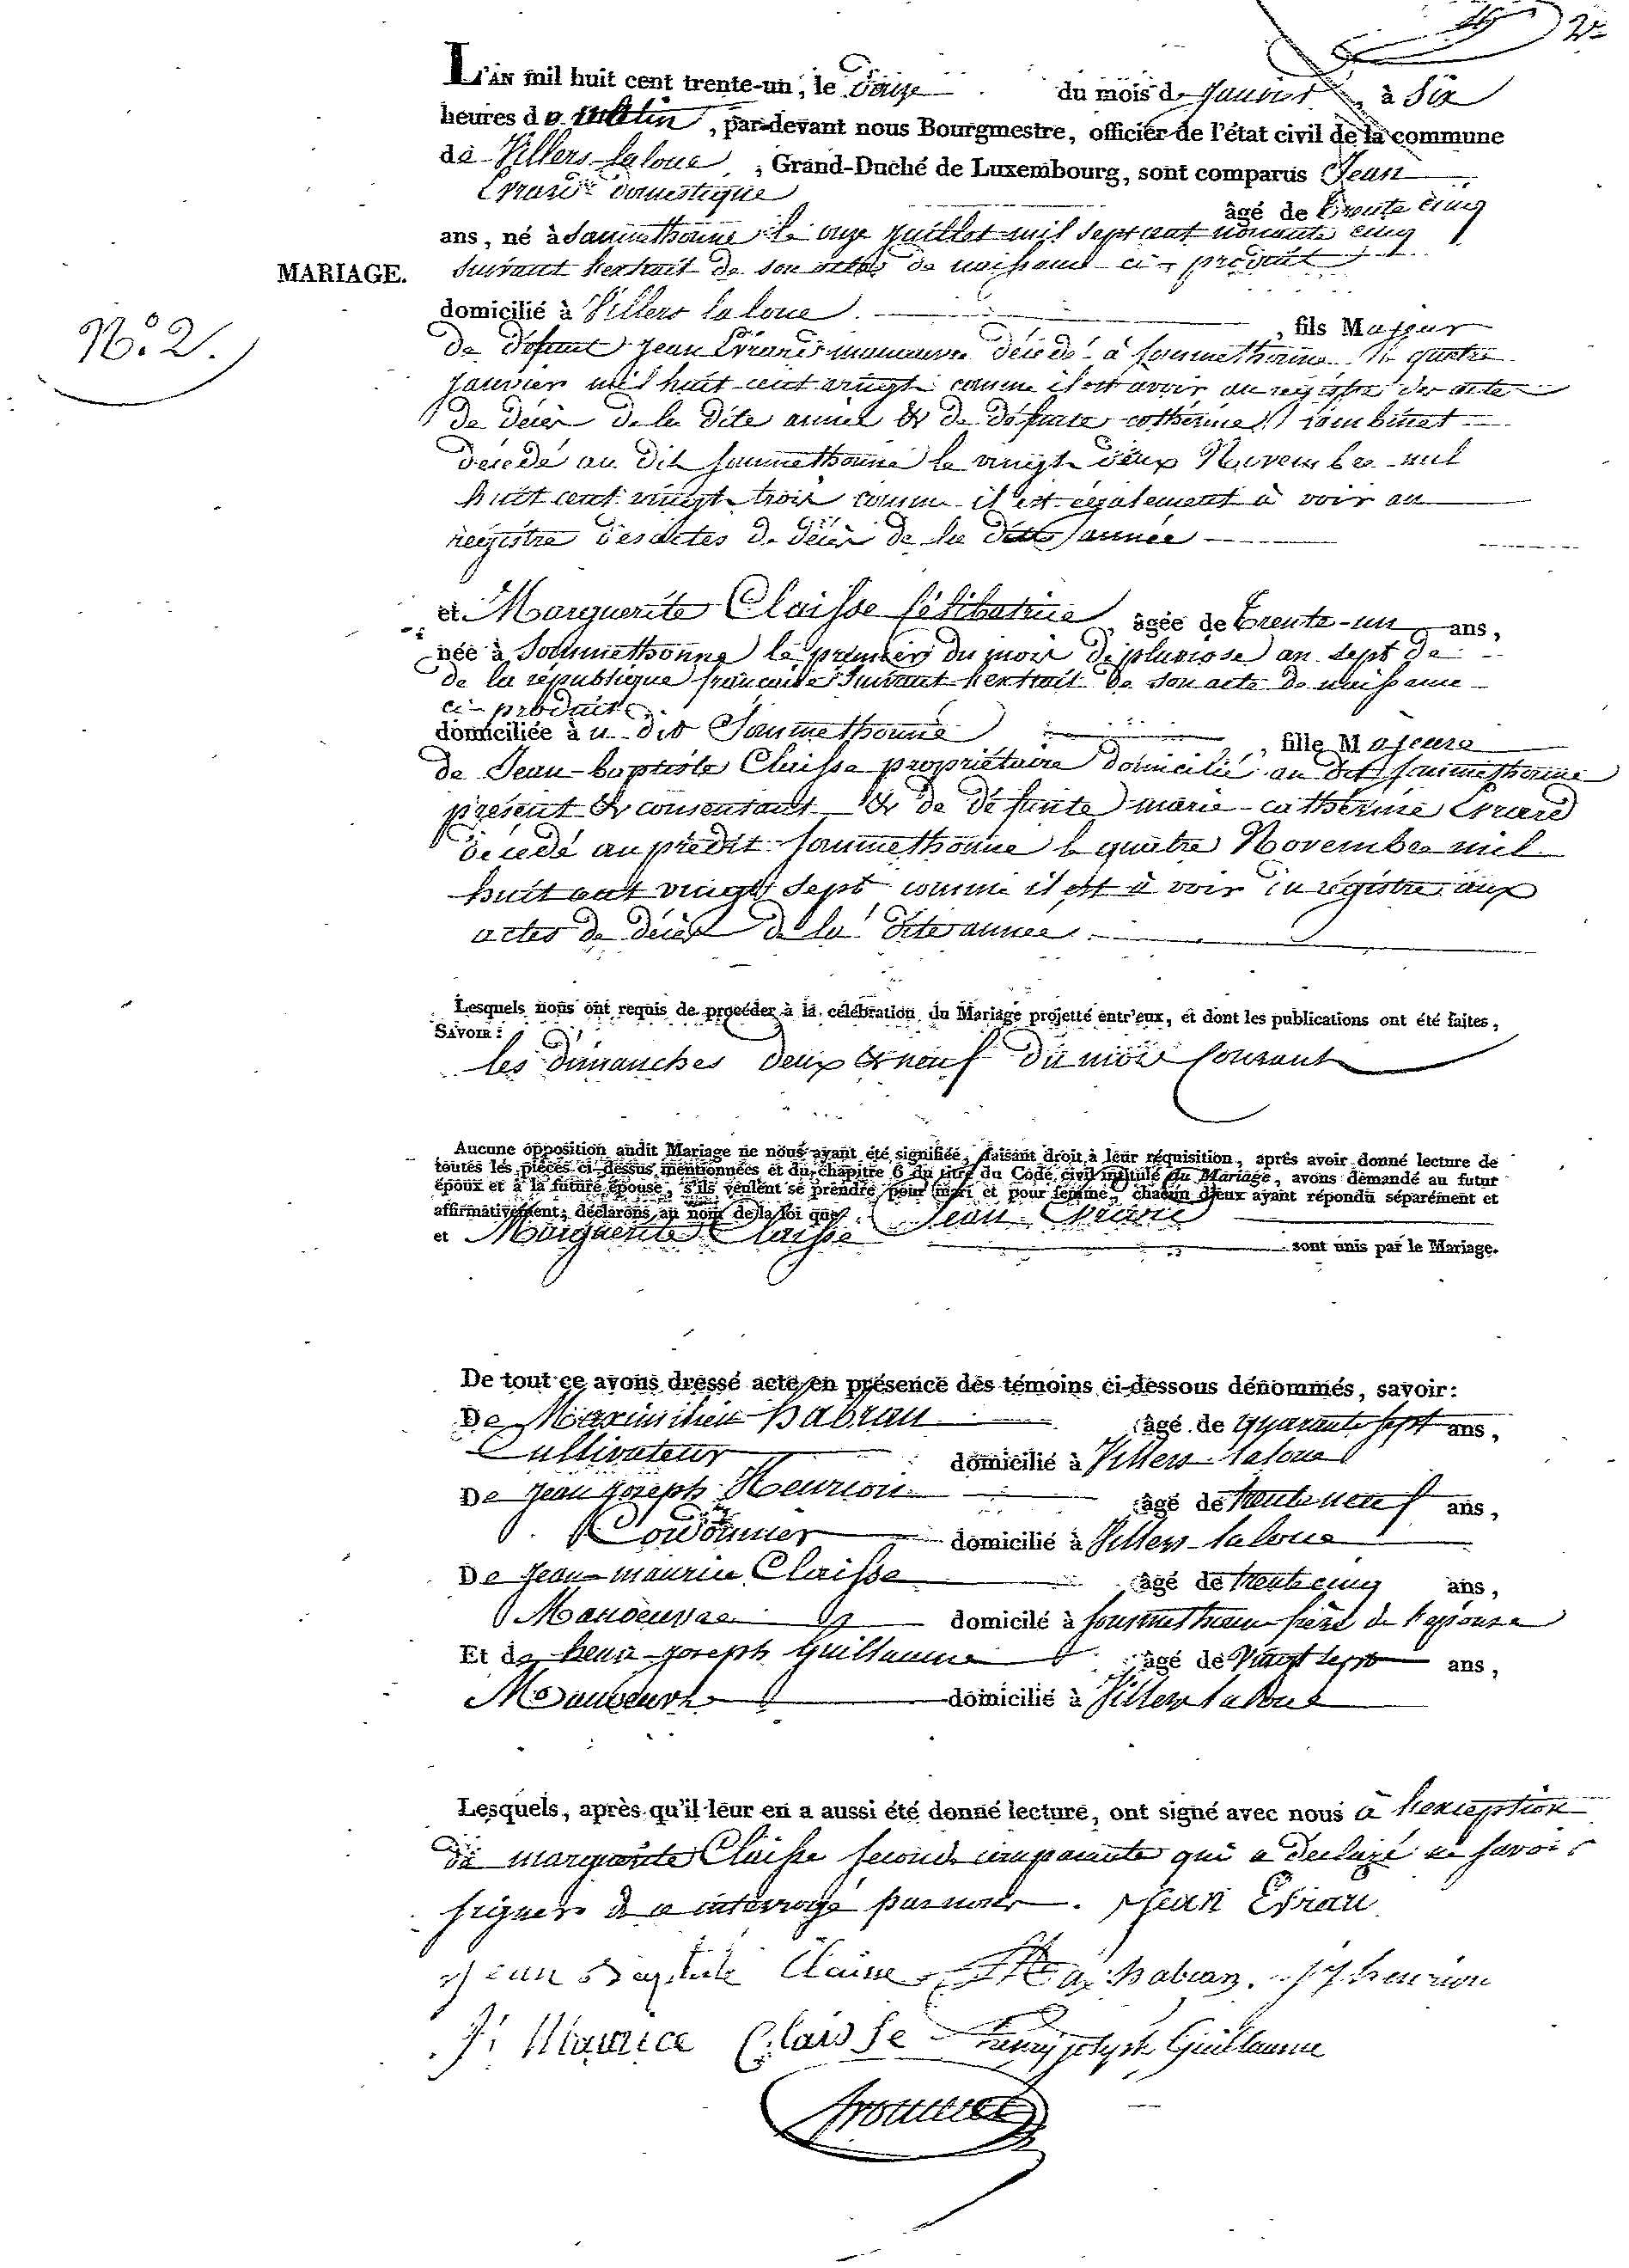 2e
L'AN mil huit cent trente-un, le douze du mois de Janvier, à Six
heures du matin, par-devant nous Bourgmestre, officier de l'état civil de la commune
de Villers-laloue, Grand-Duché de Luxembourg, sont comparus Jean
Evrard domestique âgé de trente cinq
ans, né à Sommethonne le onze Juillet mil Sept cent nonante cinq
MARIAGE. Suivant l'extrait de son acte de naissance ci-produit
N.o 2. domicilié à Villers laloue, fils Majeur
de défunt Jean Evrard manœuvre décédé à Sommethonne le quatre
Janvier mil huit cent vingt comme il est avoir au registre des actes
de décès de la dite année & de défunte cathérine
décédé au dit Sommethonne le vingt deux Novembre mil
huit cent vingt trois comme il est également à voir au
régistre des actes de décès de la ditte année
et Marguerite Claisse Célibatrice, âgée de trente-un ans,
née à Sommethonne le premier du mois de pluviose an sept de
de la république française Suivant l'extrait de son acte de naissance
ci-produit
domiciliée à u dit Sommethonne, fille Majeure
de Jean-baptiste Claisse propriétaire domicilié au dit Sommethonne
présent & consentant & de défunte marie-cathérine Evrard
décédé au prédit Sommethonne le quatre Novembre mil
huit cent vingt sept comme il est à voir au régistre aux
actes de décès de la dite année
Lesquels nous ont requis de procéder à la célébration du Mariage projetté entr'eux, et dont les publications ont été faites,
SAVOIR:
les dimanches deux & neuf du mois Courant
Aucune opposition audit Mariage ne nous ayant été signifiée, faisant droit à leur réquisition, après avoir donné lecture de
toutes les pièces ci-dessus mentionnées et du chapitre 6 du titre du Code civil intitulé du Mariage, avons demandé au futur
époux et à la future épouse, s'ils veulent se prendre pour mari et pour femme, chacun d'eux ayant répondu séparément et
affirmativement, déclarons au nom de la loi que Jean Evrard
et Marguerite Claisse sont unis par le Mariage.
De tout ce avons dressé acte en présence des témoins ci-dessous dénommés, savoir:
De Maximilien habran âgé de quarante sept ans,
Cultivateur domicilié à Villers-laloue
De Jean Joseph Henrion âgé de trente neuf ans,
Cordonnier domicilié à Villers-laloue
De Jean-maurice Claisse âgé de trente cinq ans,
Manœuvre domicilé à Sommethonne frère de l'épouse
Et de henri-joseph Guillaume âgé de Vingt sept ans,
Manœuvre domicilié à Villers laloue
Lesquels, après qu'il leur en a aussi été donné lecture, ont signé avec nous à l'exception
de marguerite Claisse seconde comparante qui a declaré ne savoir
signer de a interrogé par nous. Jean Evrau
Jean Baptiste Claisse Max habran. J J henrion
J. Maurice Claisse henry joseph Guillaume